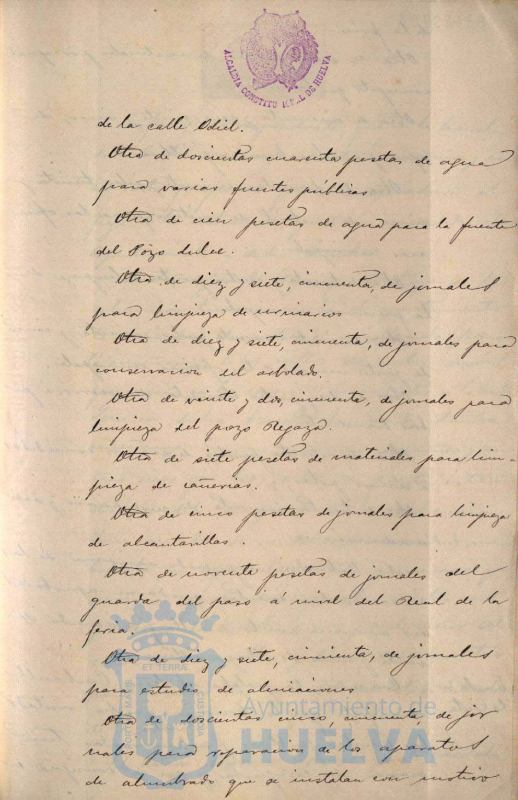 ALCALDIA CONSTITU NAL DE HUELVA
de la calle Odiel.
Otra de doscientas cuarenta pesetas de agua
para varias fuentes públicas
Otra de cien pesetas de agua para la fuente
del Pozo dulce.
Otra de diez y siete, cincuenta, de jornales
para limpieza de urinarios
Otra de diez y siete, cincuenta, de jornales para
conservacion del arbolado.
Otra de veinte y dos, cincuenta, de jornales para
limpieza del pozo Regaza.
Otra de siete pesetas de materiales para lim-
pieza de cañerias.
Otra de cinco pesetas de jornales para limpieza
de alcantarillas.
Otra de noventa pesetas de jornales del
guarda del paso á nivel del Real de la
feria.
Otra de diez y siete, cincuenta, de jornales
para estudio de alineaciones
Otra de doscientas cinco, cincuenta de jor
nales para reparacion de los aparatos
de alumbrado que se instalan con motivo
ET TERRÆ
PORTUS MARIS
CUSTODIA
Ayuntamiento de
HUELVA